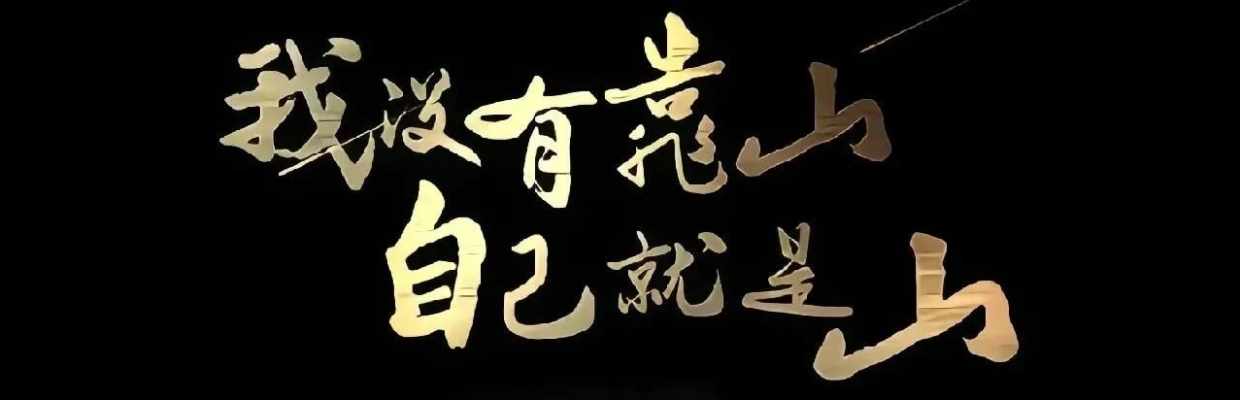 我没有靠山
自己就是山